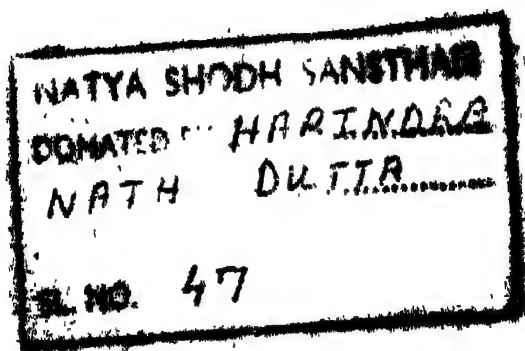 NATYA SHODH SANSTHAN
DONATED HARINDRA
NATH DUTTA
SL. NO. 47